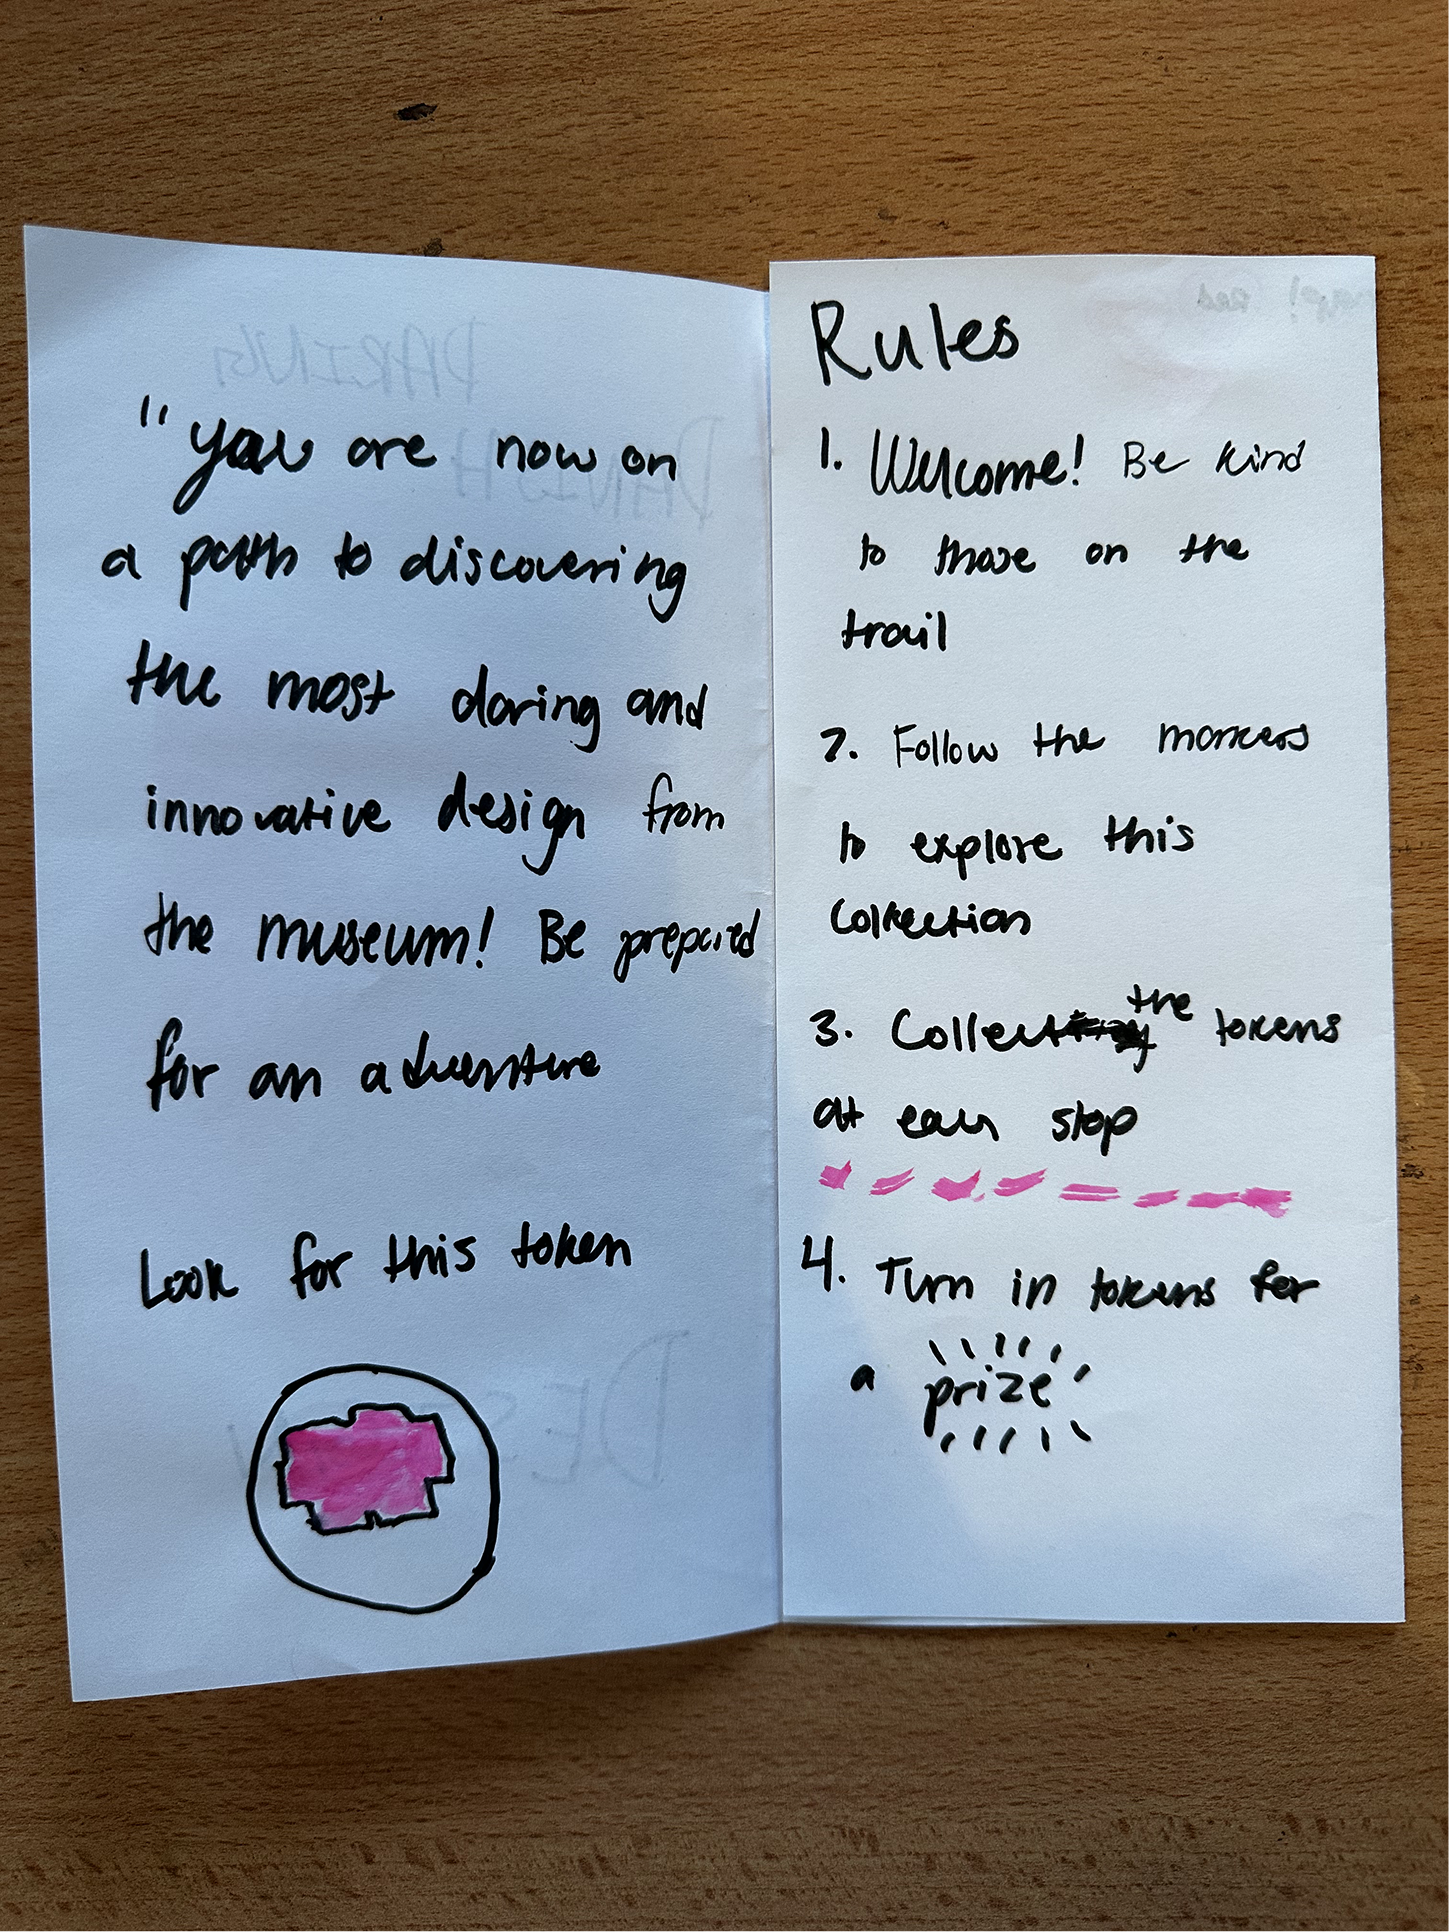 "you are now on
a path to discovering
the most daring and
innovative design from
the museum! Be prepared
for an adventure
Look for this token
Rules
1. Welcome! Be kind
to those on the
trail
2. Follow the markers
to explore this
Collection
3. Collect the tokens
at each stop
4. Turn in tokens for
a prize
DARING
DANISH
DES